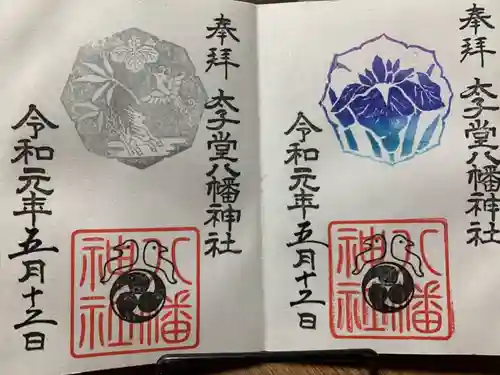 奉拝
太子堂八幡神社
令和元年五月十二日
八幡
神社
奉拝
太子堂八幡神社
令和元年五月十二日
八幡
神社